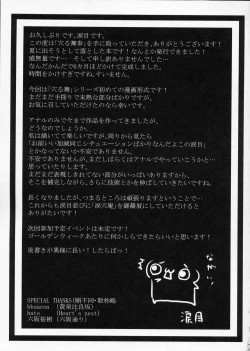 お久しぶりです。涙目です。
この度は「穴る舞参」を手に取っていただき、ありがとうございます！
夏に出そうとして落とした本です！なんとか発行できました！
感無量です…　そして申し訳ありませんでした…
なんだかんだで6カ月ほどかけて完成しました。
時間をかけすぎですね。すいません。
今回は「穴る舞」シリーズ初めての漫画形式です！
まだまだ手探りで未熟な部分ばかりですが、
お気に召していただけたのなら幸いです。
アナルのみで今まで作品を作ってきましたが、
どうなのでしょうか。
私は描いてて楽しいですが、周りから見たら
「お前いい加減同じシチュエーションばかりなんだよこの涙目」
とかなってないか不安でありません。
不安でありませんが、まだしばらくはアナルでやっていこうかと…
思っていたりします。
まだまだ表現しきれてない部分がいっぱいありますから、
そこを補完しながら、さらに技術とかを伸ばしていきたいですね。
長くなりましたが、つまるところは頑張りますということで…
これからも涙目並びに「涙穴庵」を御贔屓にしていただけると
ありがたいです！
次回参加予定イベントは未定です！
ゴールデンウィークあたりに何かしらできたらいいと思います！
後書きが異様に長い！したらばっ！
ながい…
涙目
SPECIAL THANKS(順不同・敬称略
bbsacon　(黄泉比良坂)
kato　(Heart's sent)
六阪裕樹　(六阪通り)